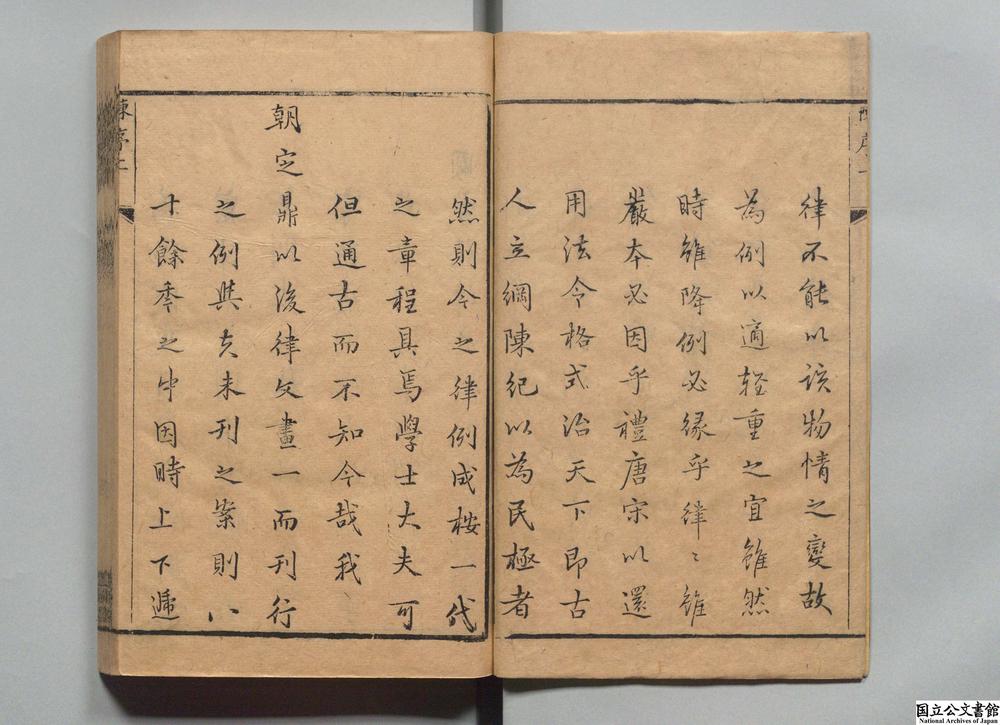 律不能以該物情之變故
為例以適輕重之宜雖然
時雖降例必緣乎律〻雖
嚴本必因乎禮唐宋以還
用法令格式治天下即古
人立綱陳紀以為民極者
然則今之律例成桉一代
之章程具焉學士大夫可
但通古而不知今哉我
朝定
鼎以後律文畫一而刊行
之例與夫未刊之案則八
十餘季之中因時上下遞
陳序
国立公文書館
National Archives of Japan